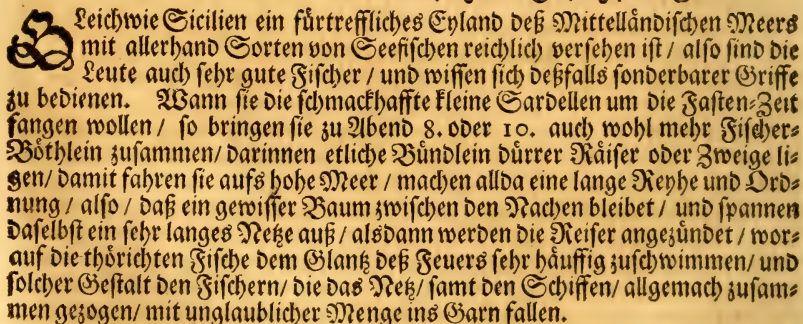 GLeichwie Sicilien ein fürtreffliches Eyland deß Mittelländischen Meers
mit allerhand Sorten von Seefischen reichlich versehen ist / also sind die
Leute auch sehr gute Fischer / und wissen sich deßfalls sonderbarer Griffe
zu bedienen. Wann sie die schmackhaffte kleine Sardellen um die Fasten-Zeit
fangen wollen / so bringen sie zu Abend 8. oder 10. auch wohl mehr Fischer-
Böthlein zusammen / darinnen etliche Bündlein dürrer Räiser oder Zweige li-
gen / damit fahren sie aufs hohe Meer / machen allda eine lange Reyhe und Ord-
nung / also / daß ein gewisser Baum zwischen den Nachen bleibet / und spannen
daselbst ein sehr langes Netze auß / alsdann werden die Reiser angezündet / wor-
auf die thörichten Fische dem Glantz deß Feuers sehr häuffig zuschwimmen / und
solcher Gestalt den Fischern / die das Netz / samt den Schiffen / allgemach zusam-
men gezogen / mit unglaublicher Menge ins Garn fallen.